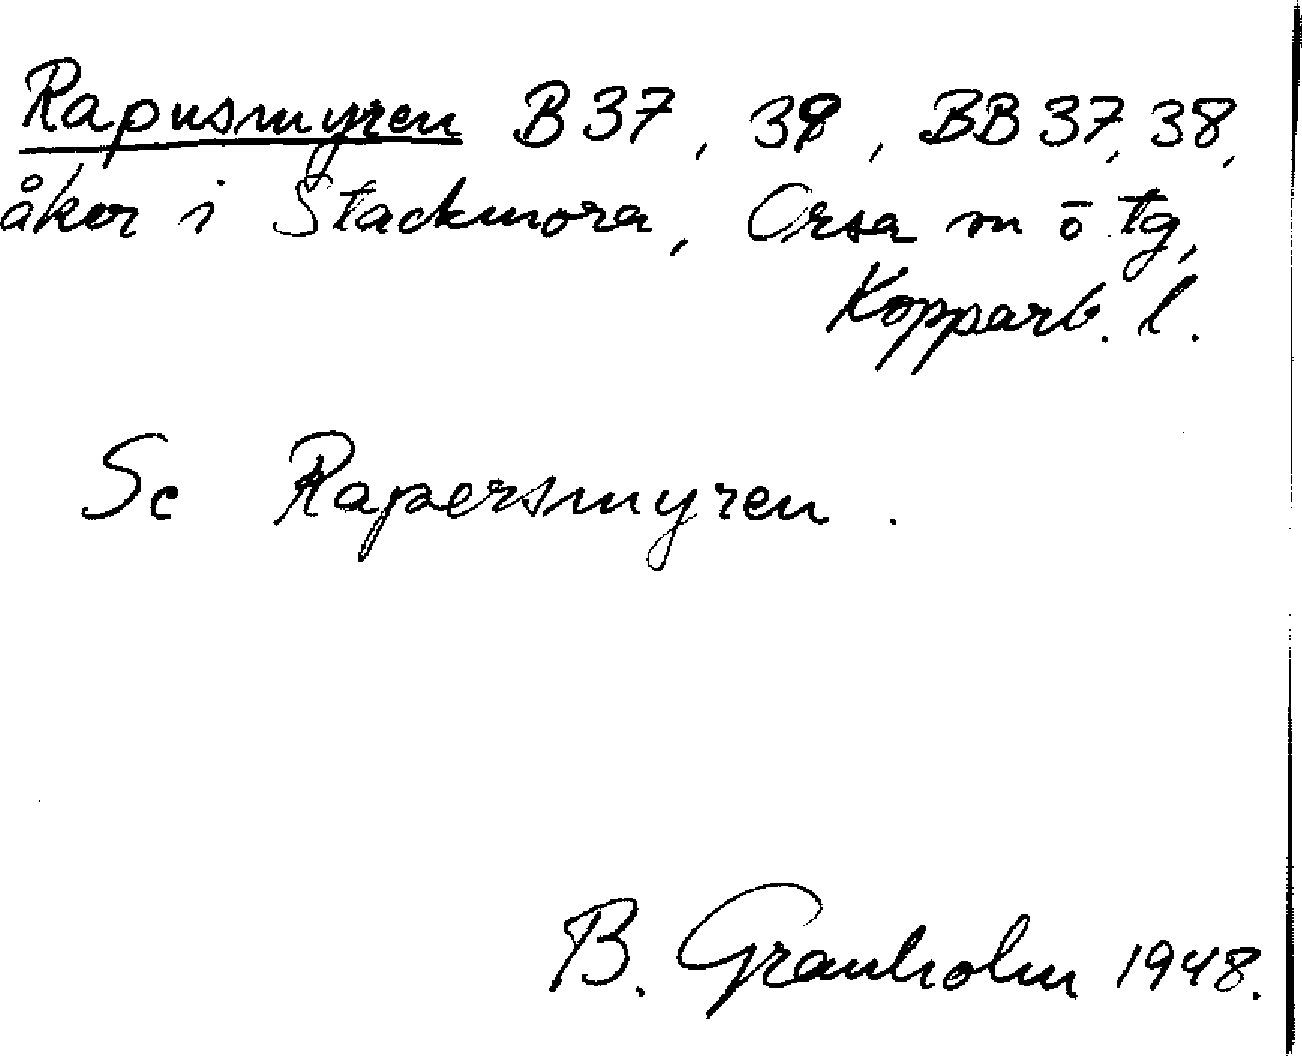 Rapusmyren B 37, 38, BB 37, 38,
åker i Stackmora, Orsa m ö tg,
Kopparb. l.
Se Rapersmyren.
B. Granholm 1948.